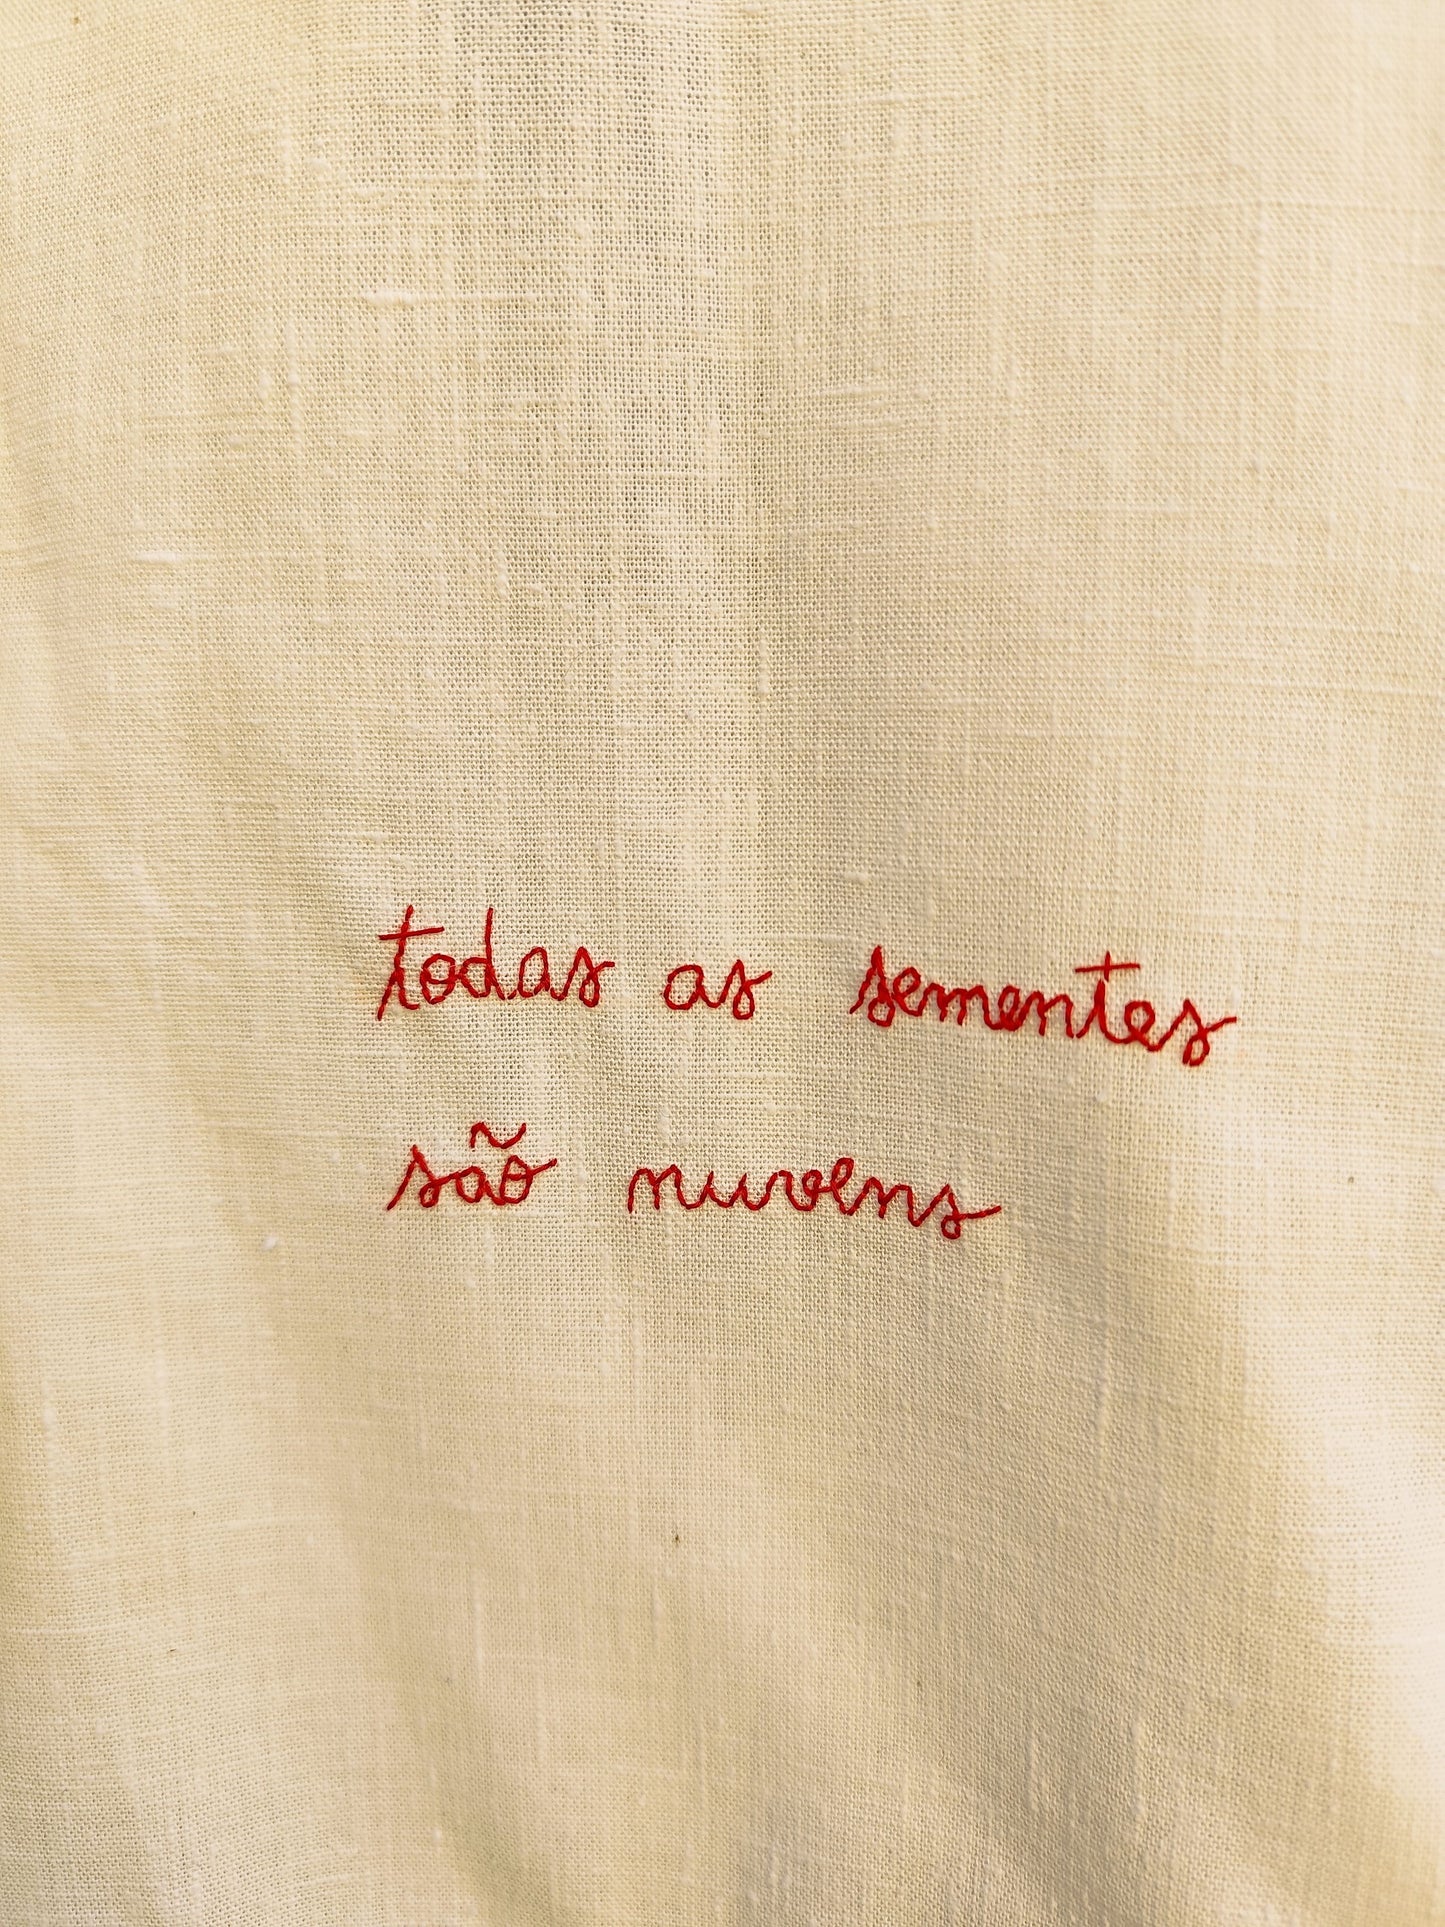 todas as sementes
são nuvens